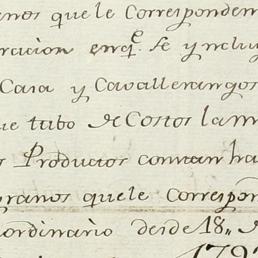 enos que le Correspondem
racion enq.e se yncluy
Casa y Cavallerangos
ue tubo de Costos la m
s Productos comun ha
granos quele correspon
ordinario desde 18,, d
179